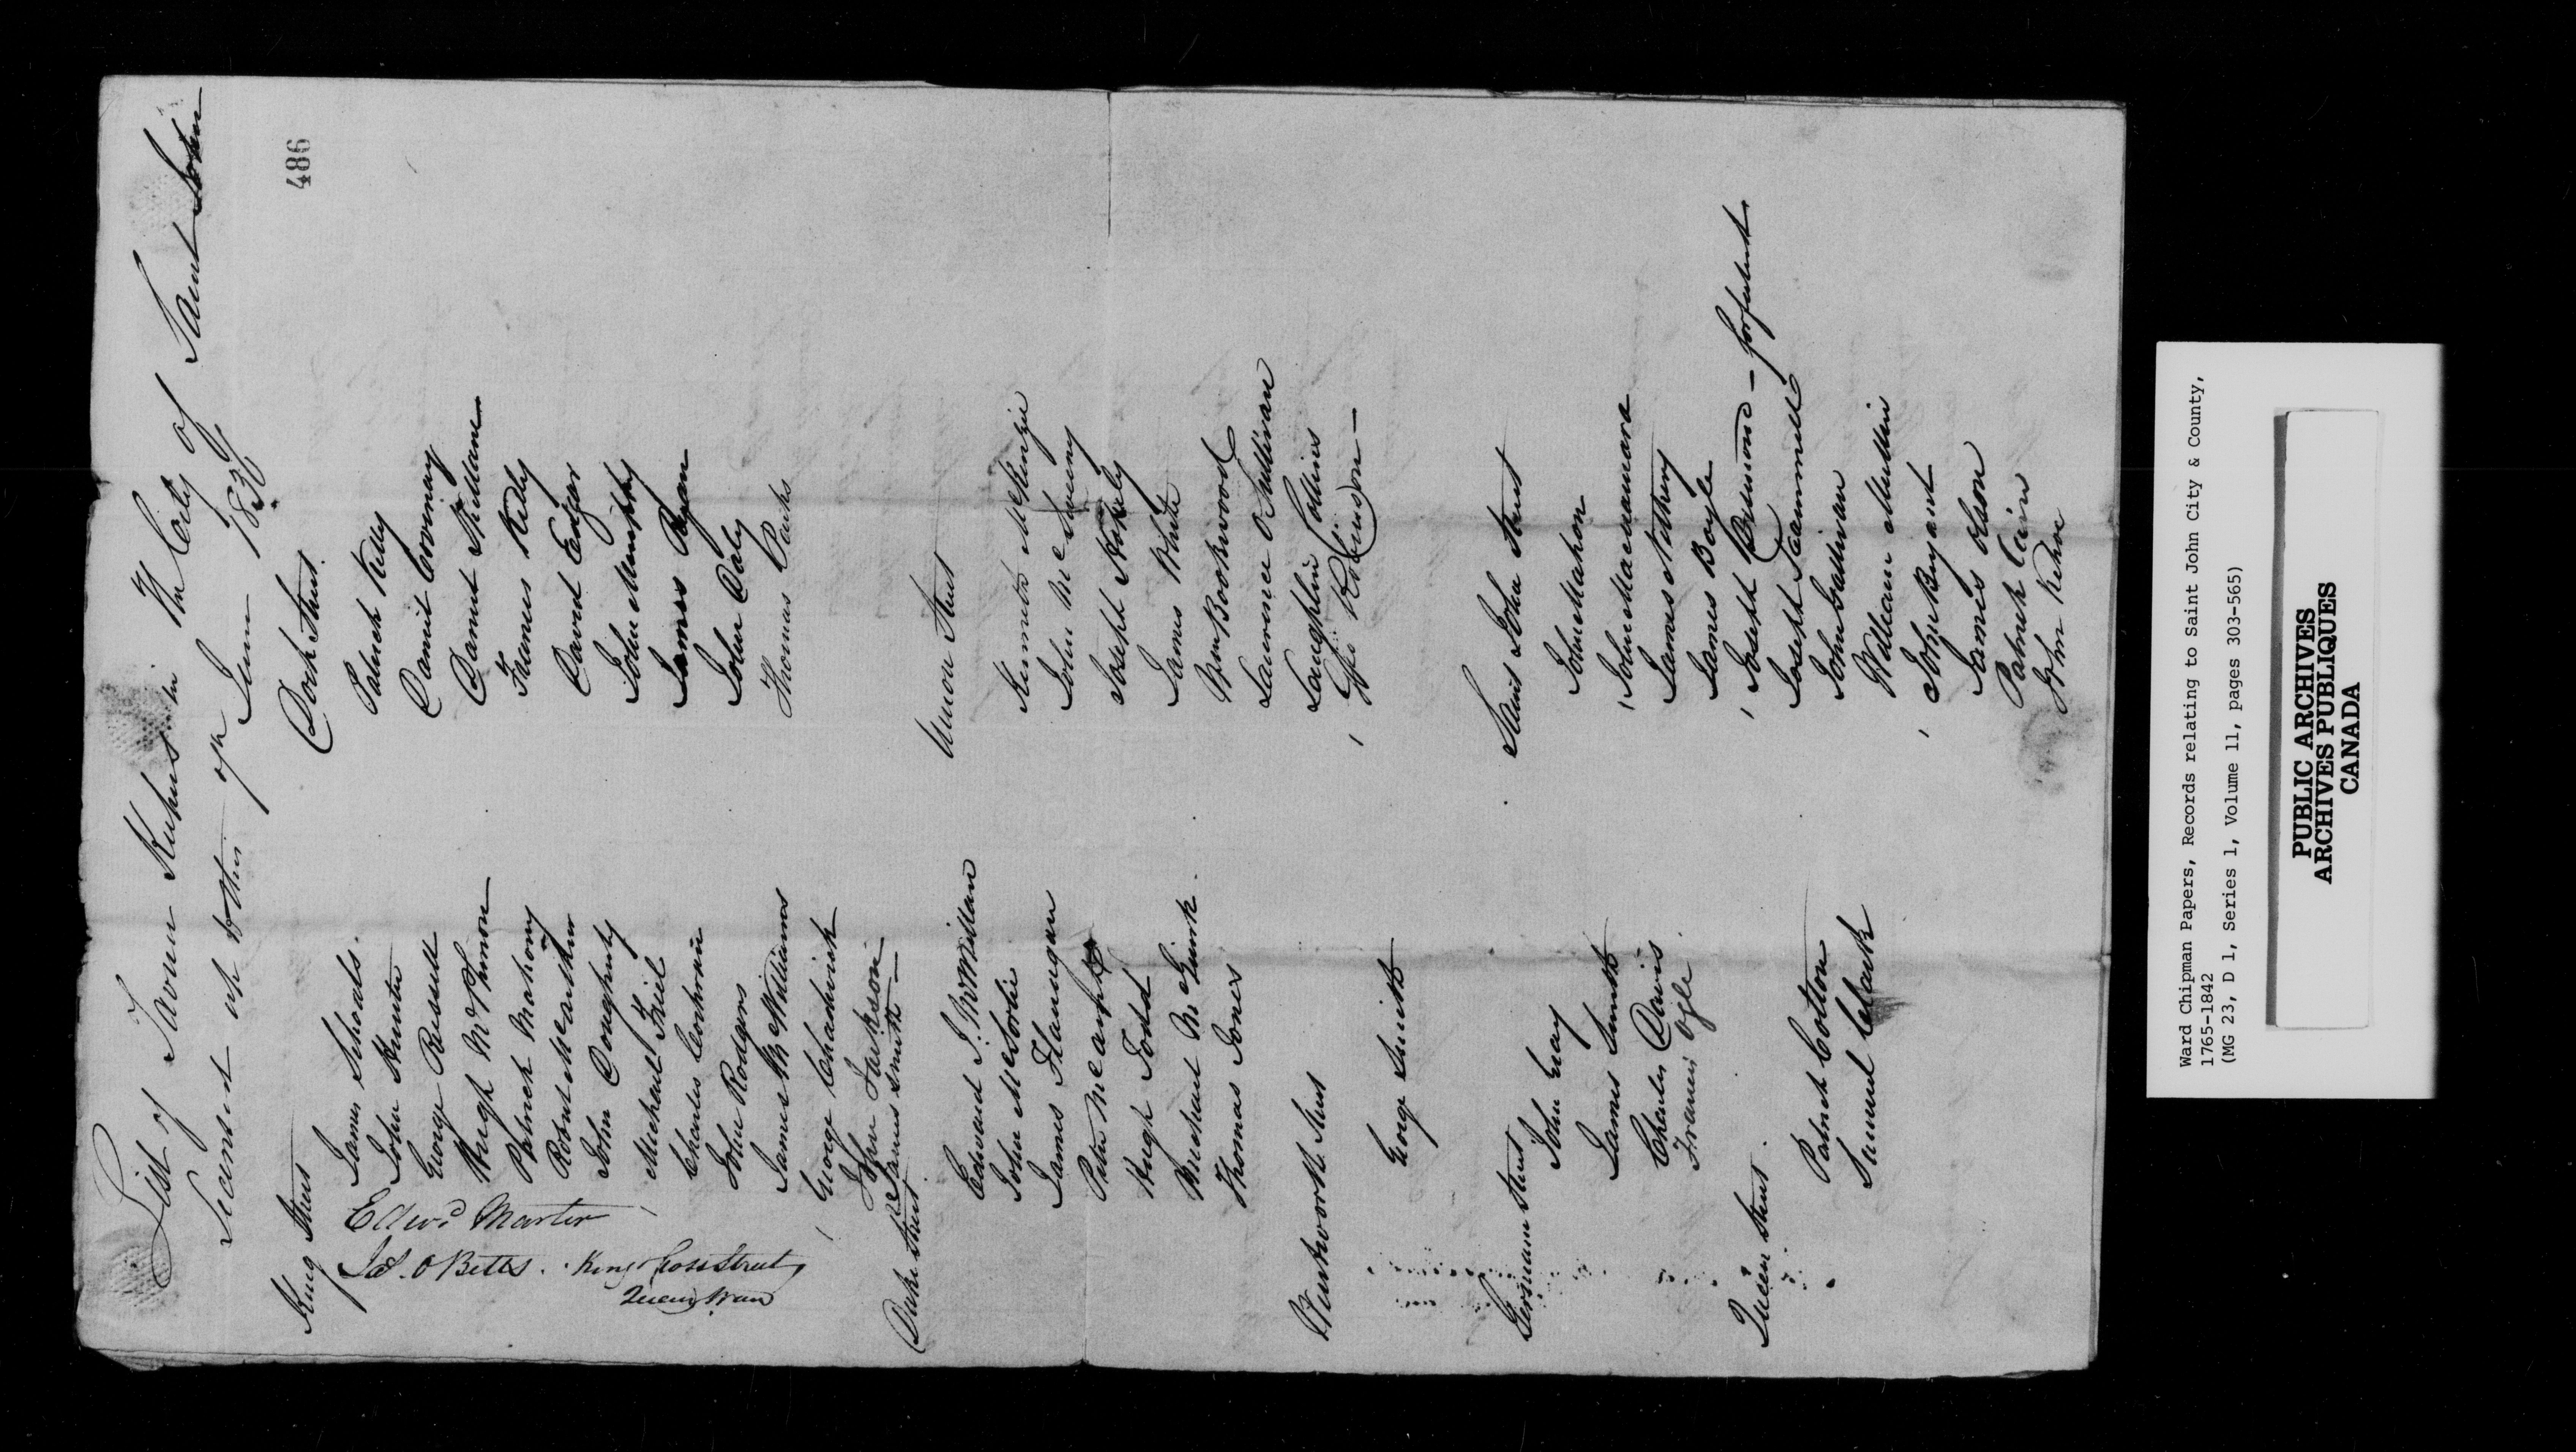 List of Tavern Keepers in The City of Saint John
Licensed up to this 7th June 1836
486
King Street
James Schoals.
John Hunter
George Bissett
Hugh McShimon
Patrick Mahony
Robert McArthur
John Dougherty
Michael Friel
Charles Cochran
John Rodgers
James McWilliams
George Chadwick
John Jackson
James Smith
Edwd Marter
Jas. O Betts. King & Cross Street
Queens Ward
Duke Street
Edward J. McMillan
John McSorlie
James Flannigan
Peter McCarphy
Hugh Todd
Michael McGuirk.
Thomas Jones
Wentworth Street
George Smith
Germain Street
John Gray
James Smith
Charles Davis
Francis Ogle
Queen Street.
Patrick Cotton
Samuel Clark
Dock Street.
Patrick Kelly
Daniel Coveney
Daniel
Francis Kelly
David Edgar
John Murphy
James Ryan
John Daly
Thomas Parks
Union Street
Kenneth McKenzie
John McSweeny
Joseph
James White
Wm Bookwood
Laurence OSullivan
Laughlin Collins
Robinson
Saint John Street
John Mahon
John Macnamara
James Nethery
James Boyle
Joseph – forfeited.
Joseph Scammell
John Gallivan
William Mullin
John Bryant
James Olson
Patrick Cain
John Kehoe
Ward Chipman Papers, Records relating to Saint John City & County,
1765-1842
(MG 23, D 1, Series 1, Volume 11, pages 303-565)
PUBLIC ARCHIVES
ARCHIVES PUBLIQUES
CANADA